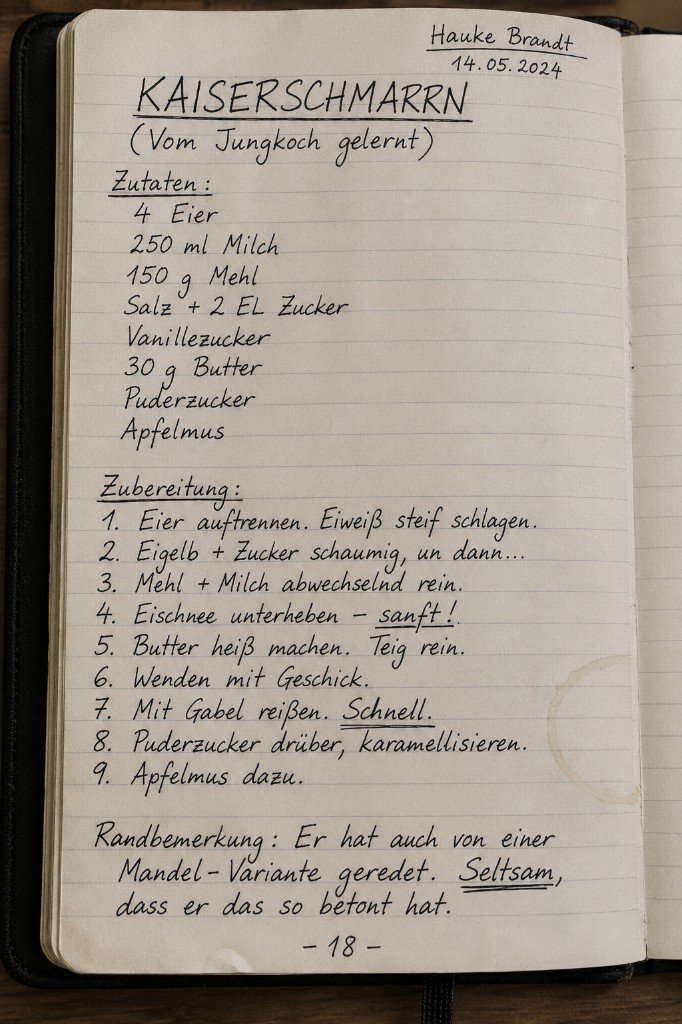 Hauke Brandt
14.05.2024
KAISERSCHMARRN
(Vom Jungkoch gelernt)
Zutaten:
4 Eier
250 ml Milch
150 g Mehl
Salz + 2 EL Zucker
Vanillezucker
30 g Butter
Puderzucker
Apfelmus
Zubereitung:
1. Eier auftrennen. Eiweiß steif schlagen.
2. Eigelb + Zucker schaumig, un dann...
3. Mehl + Milch abwechselnd rein.
4. Eischnee unterheben – sanft!
5. Butter heiß machen. Teig rein.
6. Wenden mit Geschick.
7. Mit Gabel reißen. Schnell.
8. Puderzucker drüber, karamellisieren.
9. Apfelmus dazu.
Randbemerkung: Er hat auch von einer
Mandel-Variante geredet. Seltsam,
dass er das so betont hat.
– 18 –